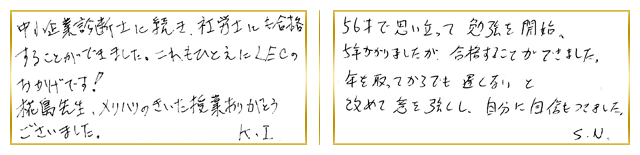 中小企業診断士に続き、社労士にも合格
することができました。これもひとえにLECの
おかげです!
椛島先生、メリハリのきいた授業ありがとう
ございました。
K.I.
56才で思い立って勉強を開始、
5年かかりましたが、合格することができました。
年を取ってからでも遅くないと
改めて意を強くし、自分に自信もつきました。
S.N.